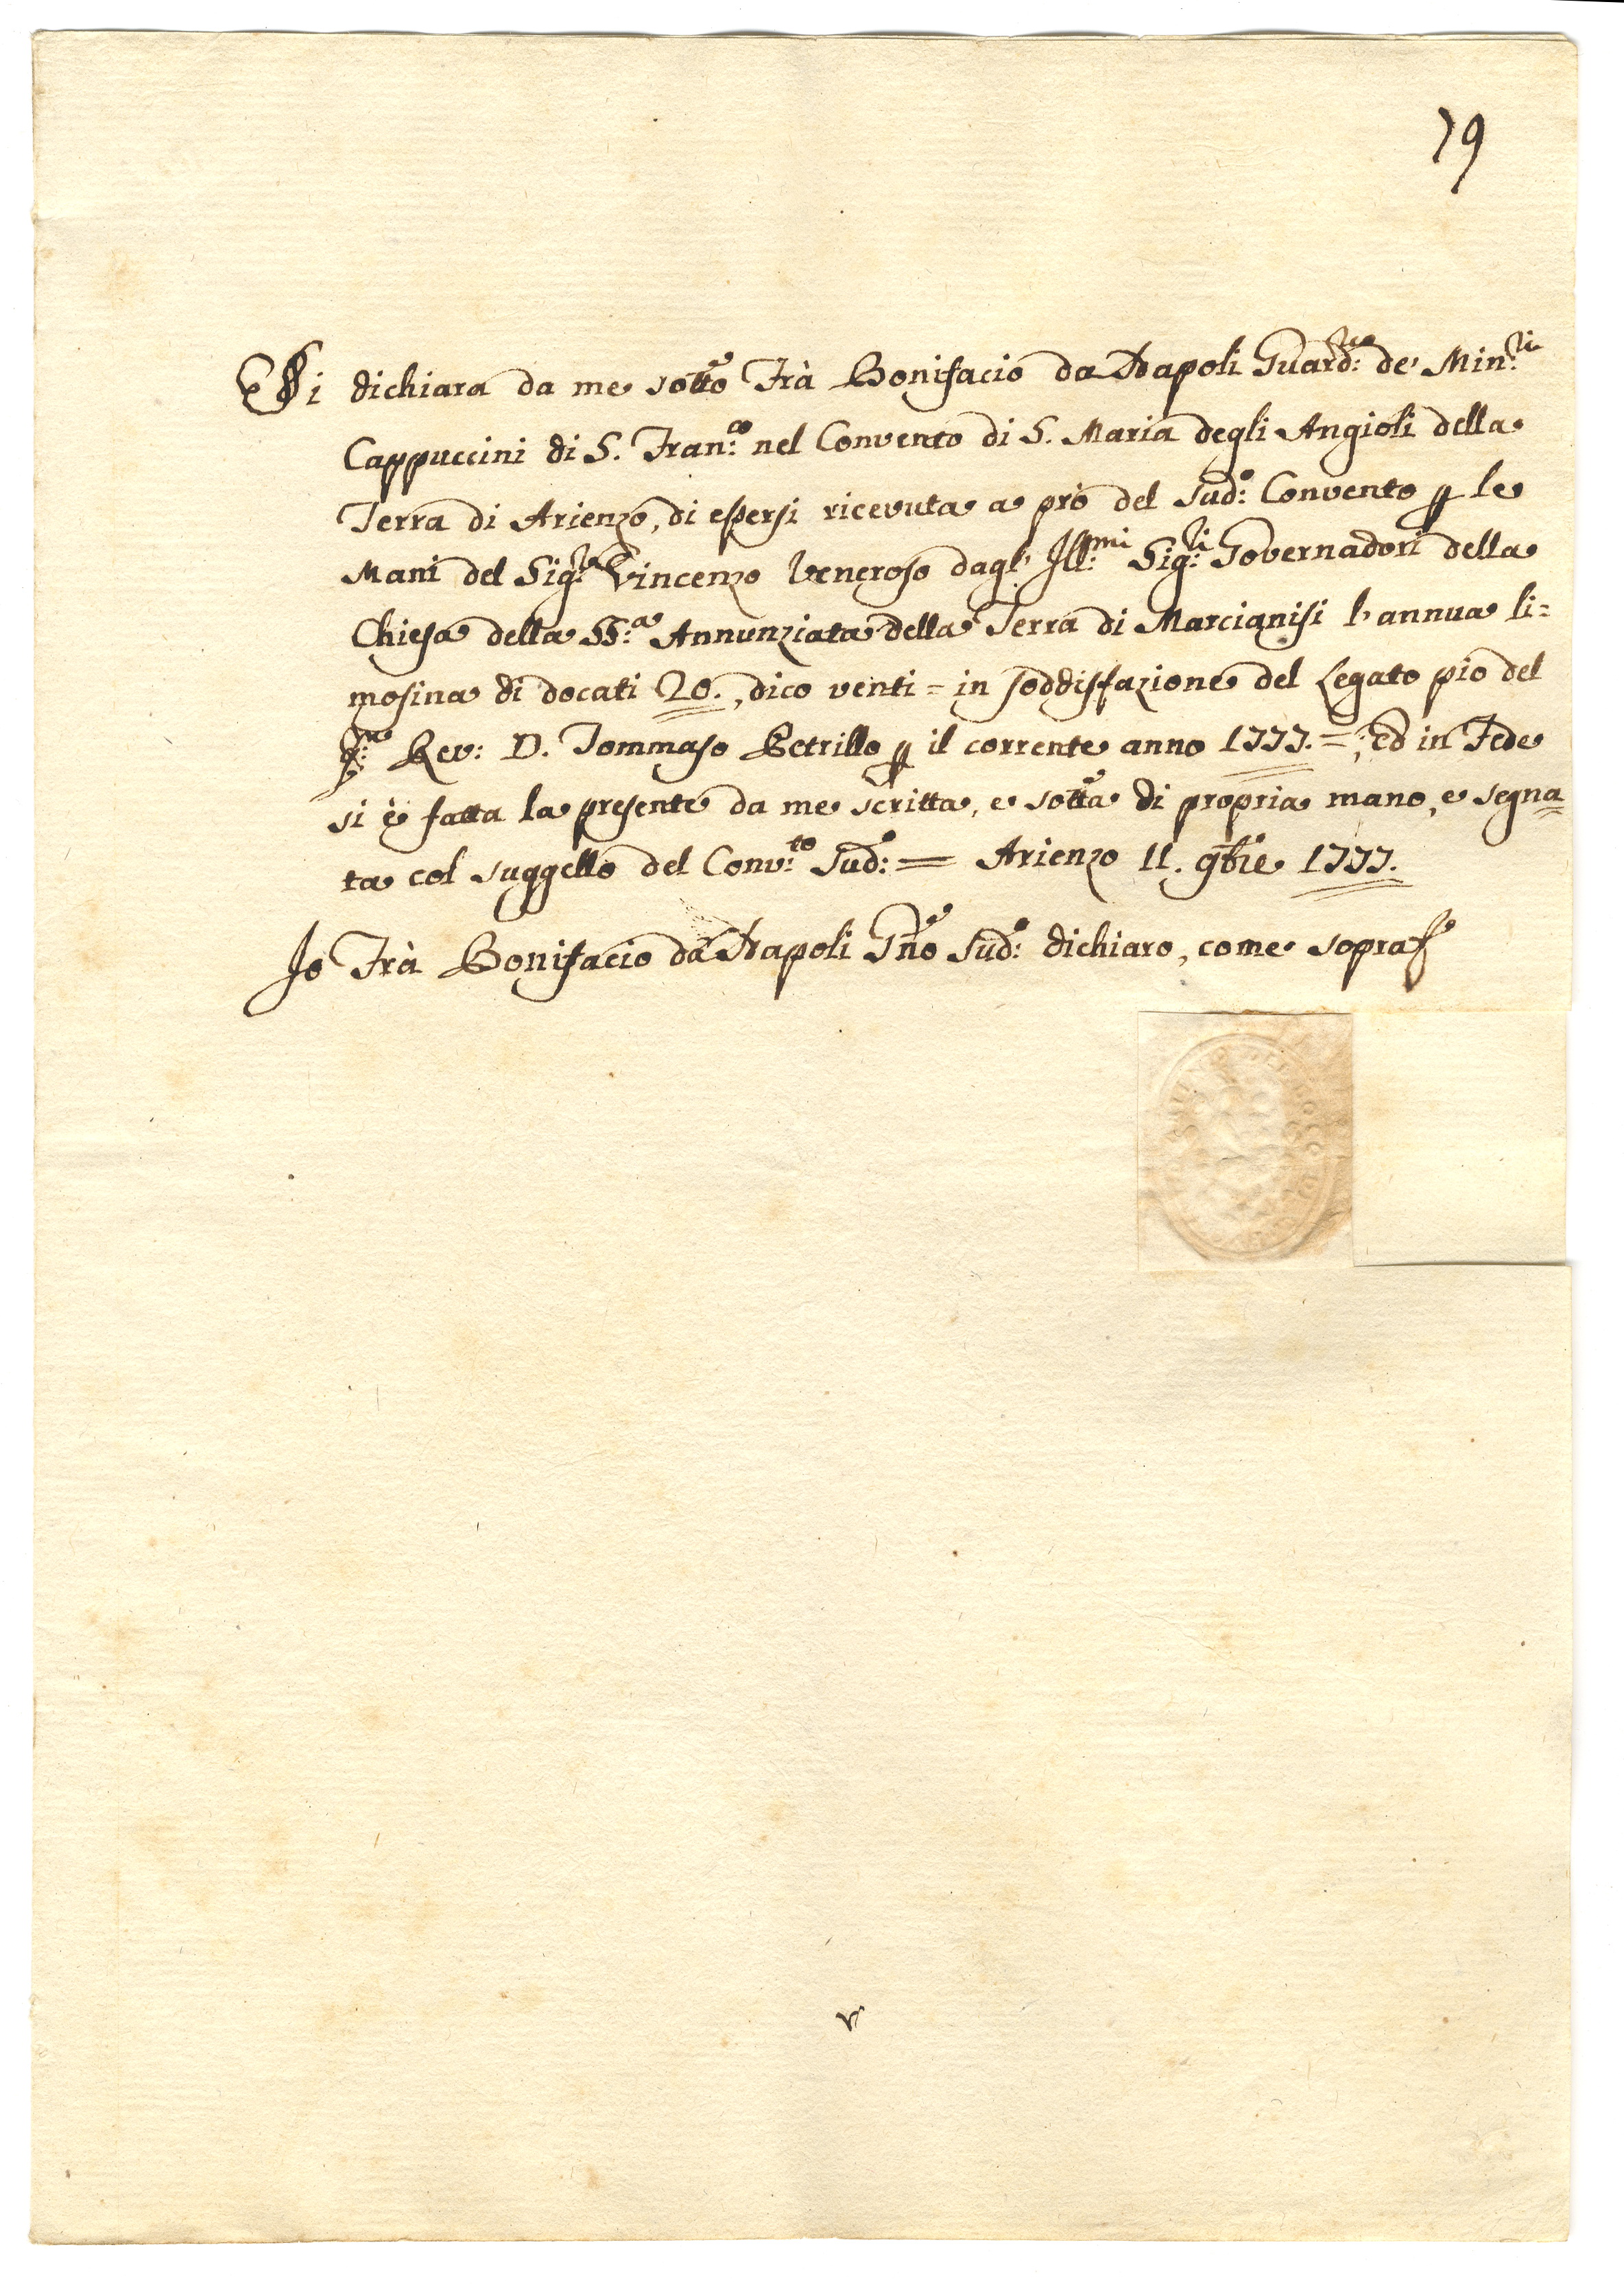 79
Si dichiara da me sotto Frà Bonifacio da Napoli Guard:ne de' Min:ri
Cappuccini di S. Fran:co nel Convento di S. Maria degli Angioli della
Terra di Arienzo, di essersi ricevuta a prò del sud:o Convento p le
Mani del Sig:r Vincenzo Veneroso dagl' Ill:mi Sig:ri Governadori della
Chiesa della SS:a Annunziata della Terra di Marcianisi l'annua li=
mosina di docati 20., dico venti = in soddisfazione del Legato pio del
q:m Rev: D. Tommaso Petrillo p il corrente anno 1777. =; Ed in Fede
si è fatta la presente da me scritta, e sotta di propria mano, e segna
ta col suggello del Conv:to sud:o = Arienzo 11. 9bre 1777.
Io Frà Bonifacio da Napoli Gno sud:o dichiaro, come sopra